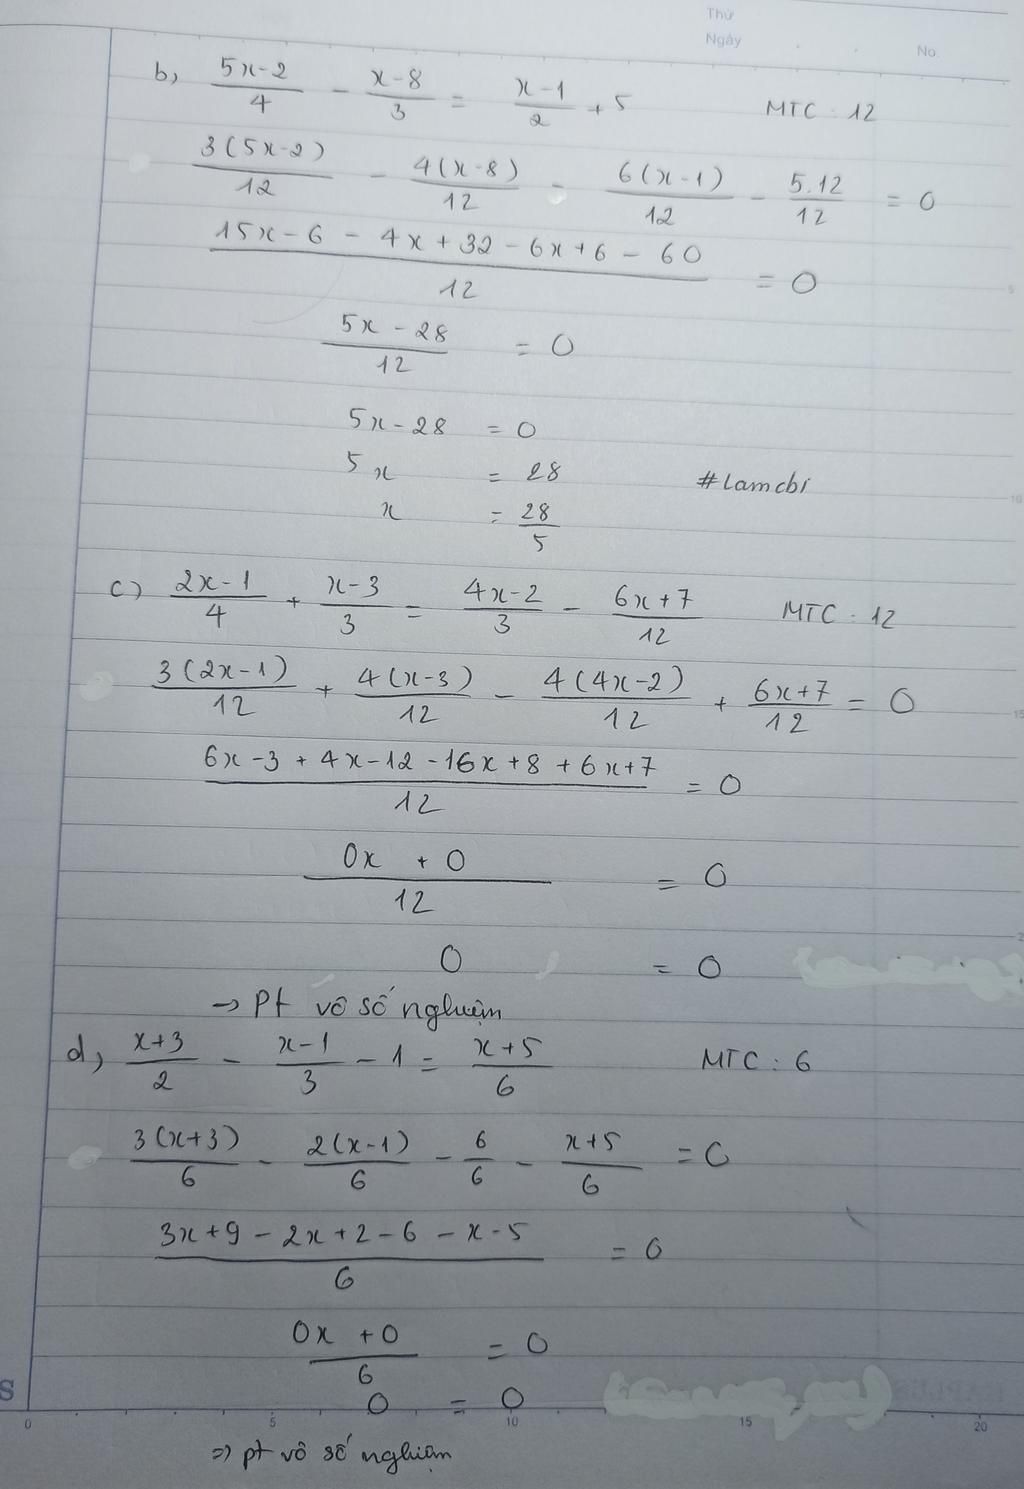 Thứ
Ngày
No.
b, (5x-2)/4 - (x-8)/3 = (x-1)/2 + 5 MTC : 12
3(5x-2)/12 - 4(x-8)/12 - 6(x-1)/12 - 5.12/12 = 0
(15x - 6 - 4x + 32 - 6x + 6 - 60)/12 = 0
(5x - 28)/12 = 0
5x - 28 = 0
5x = 28 #lamcbi
x = 28/5
c) (2x-1)/4 + (x-3)/3 = (4x-2)/3 - (6x+7)/12 MTC : 12
3(2x-1)/12 + 4(x-3)/12 - 4(4x-2)/12 + (6x+7)/12 = 0
(6x-3 + 4x-12 - 16x + 8 + 6x+7)/12 = 0
(0x + 0)/12 = 0
0 = 0
→ Pt vô số nghiệm
d, (x+3)/2 - (x-1)/3 - 1 = (x+5)/6 MTC : 6
3(x+3)/6 - 2(x-1)/6 - 6/6 - (x+5)/6 = 0
(3x+9 - 2x+2 - 6 - x - 5)/6 = 0
(0x + 0)/6 = 0
0 = 0
0 5 10 15 20
=> pt vô số nghiệm